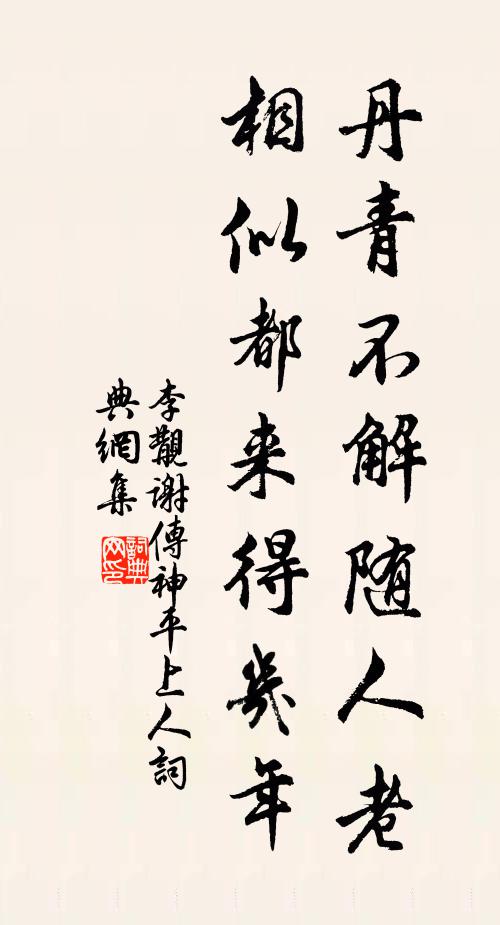 丹青不解随人老
相似都来得幾年
李觀谢傳神平上人詞
典網集
詞典
网印